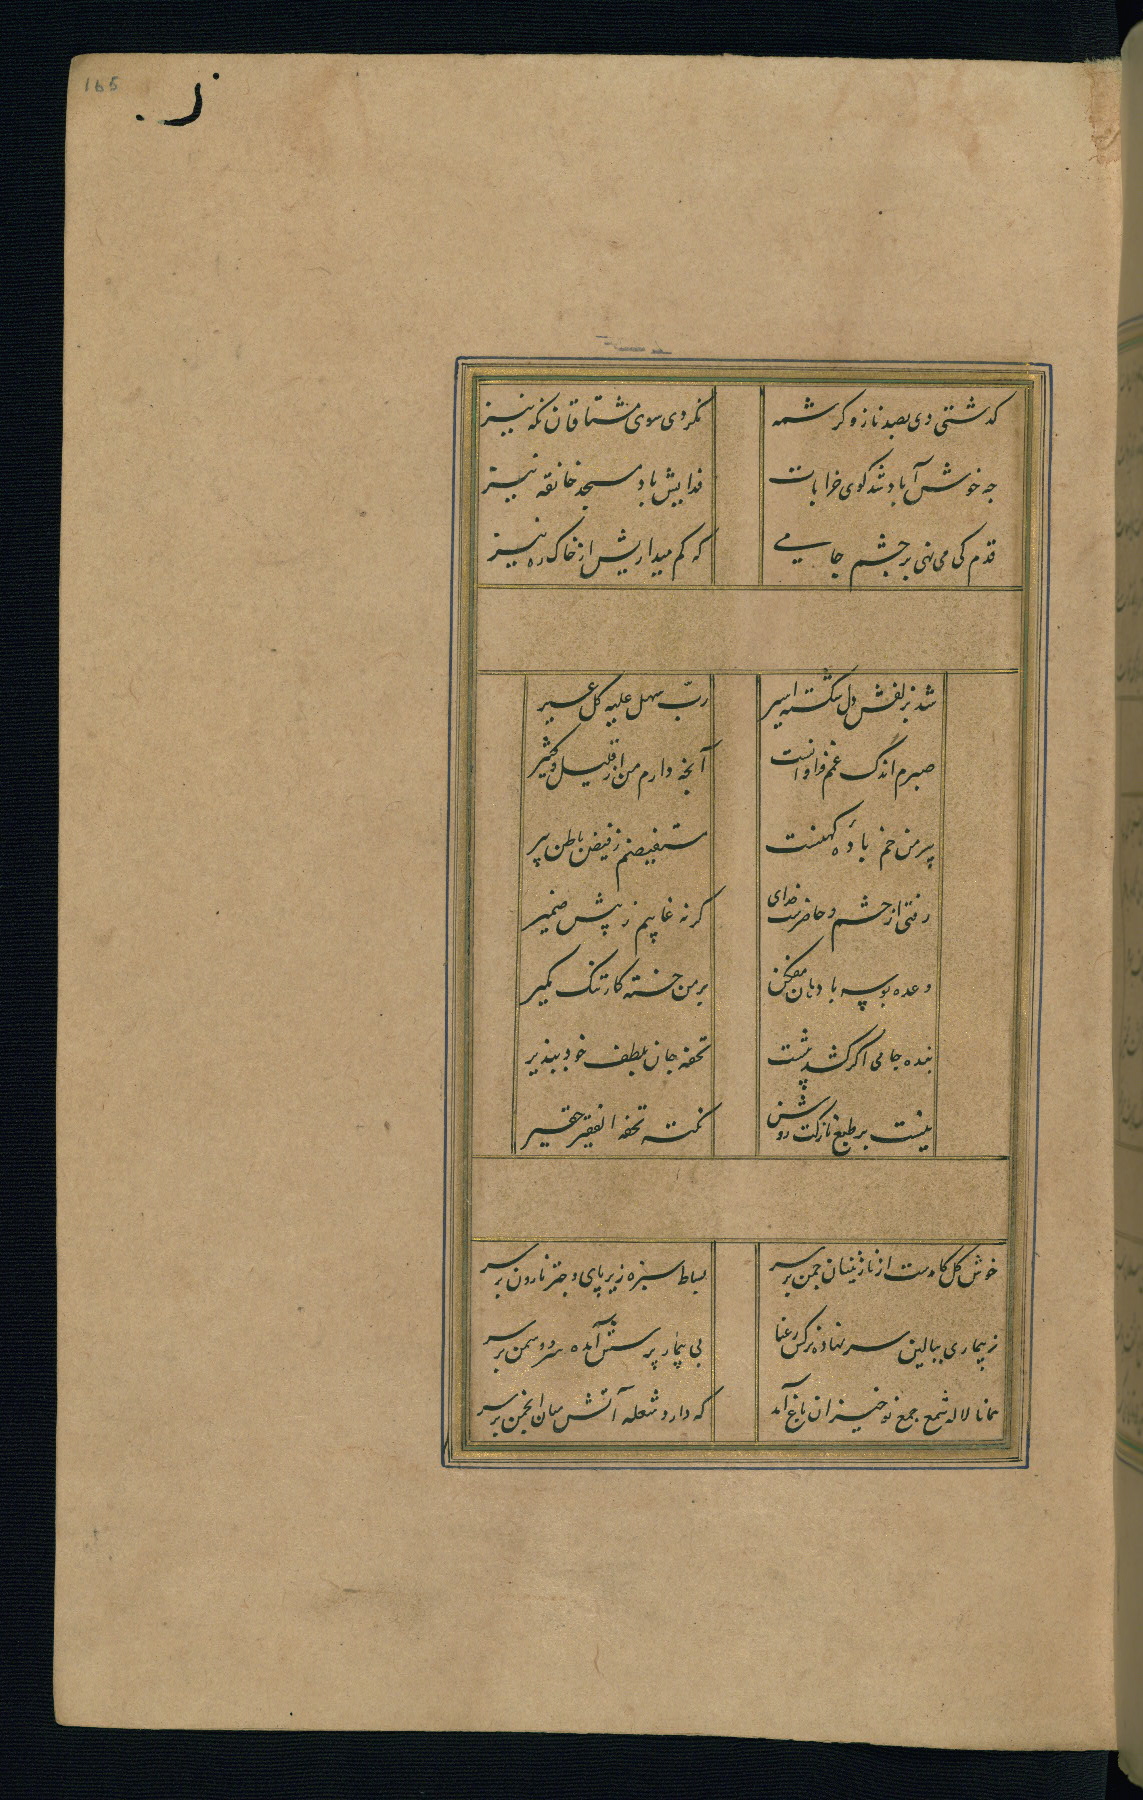 165
ز.
کدشتی دی بصد ناز و کرشمه نکردی سوی مشتاقان نکه نیز
چه خوش آباد شد کوی خرابات فدایش باد مسجد خانقه نیز
قدم کی می نهی بر چشم جامی که کم میداریش از خاک ره نیز
شد بزلفش دل شکسته اسیر ربّ سهل علیه کل عسیر
صبرم اندک غمم فراوانست آنچه دارم من از قلیل و کثیر
پیر من خم بادهٔ کهنست مستفیضم ز فیض باطن پیر
رفتی از چشم و حاضرست خدای کر نه غایبم ز پیش ضمیر
وعده بوسه با دهان مفکن بر من خسته کار تنک مکیر
بنده جامی اکر کشد پیشت تحفه جان بلطف خود بپذیر
نیست بر طبع نازکت روشن نکته تحفة الفقیر حقیر
خوش کل کامدست از نازنینان چمن بر سر بساط سبزه زیر پای و چتر نارون بر سر
ز بیماری ببالین سر نهاده نرکس رعنا پی بیمار پرسش آمده سرو و سمن بر سر
همانا لاله شمع جمع نوخیزان باغ آمد که دارد شعله آتش میان انجمن بر سر